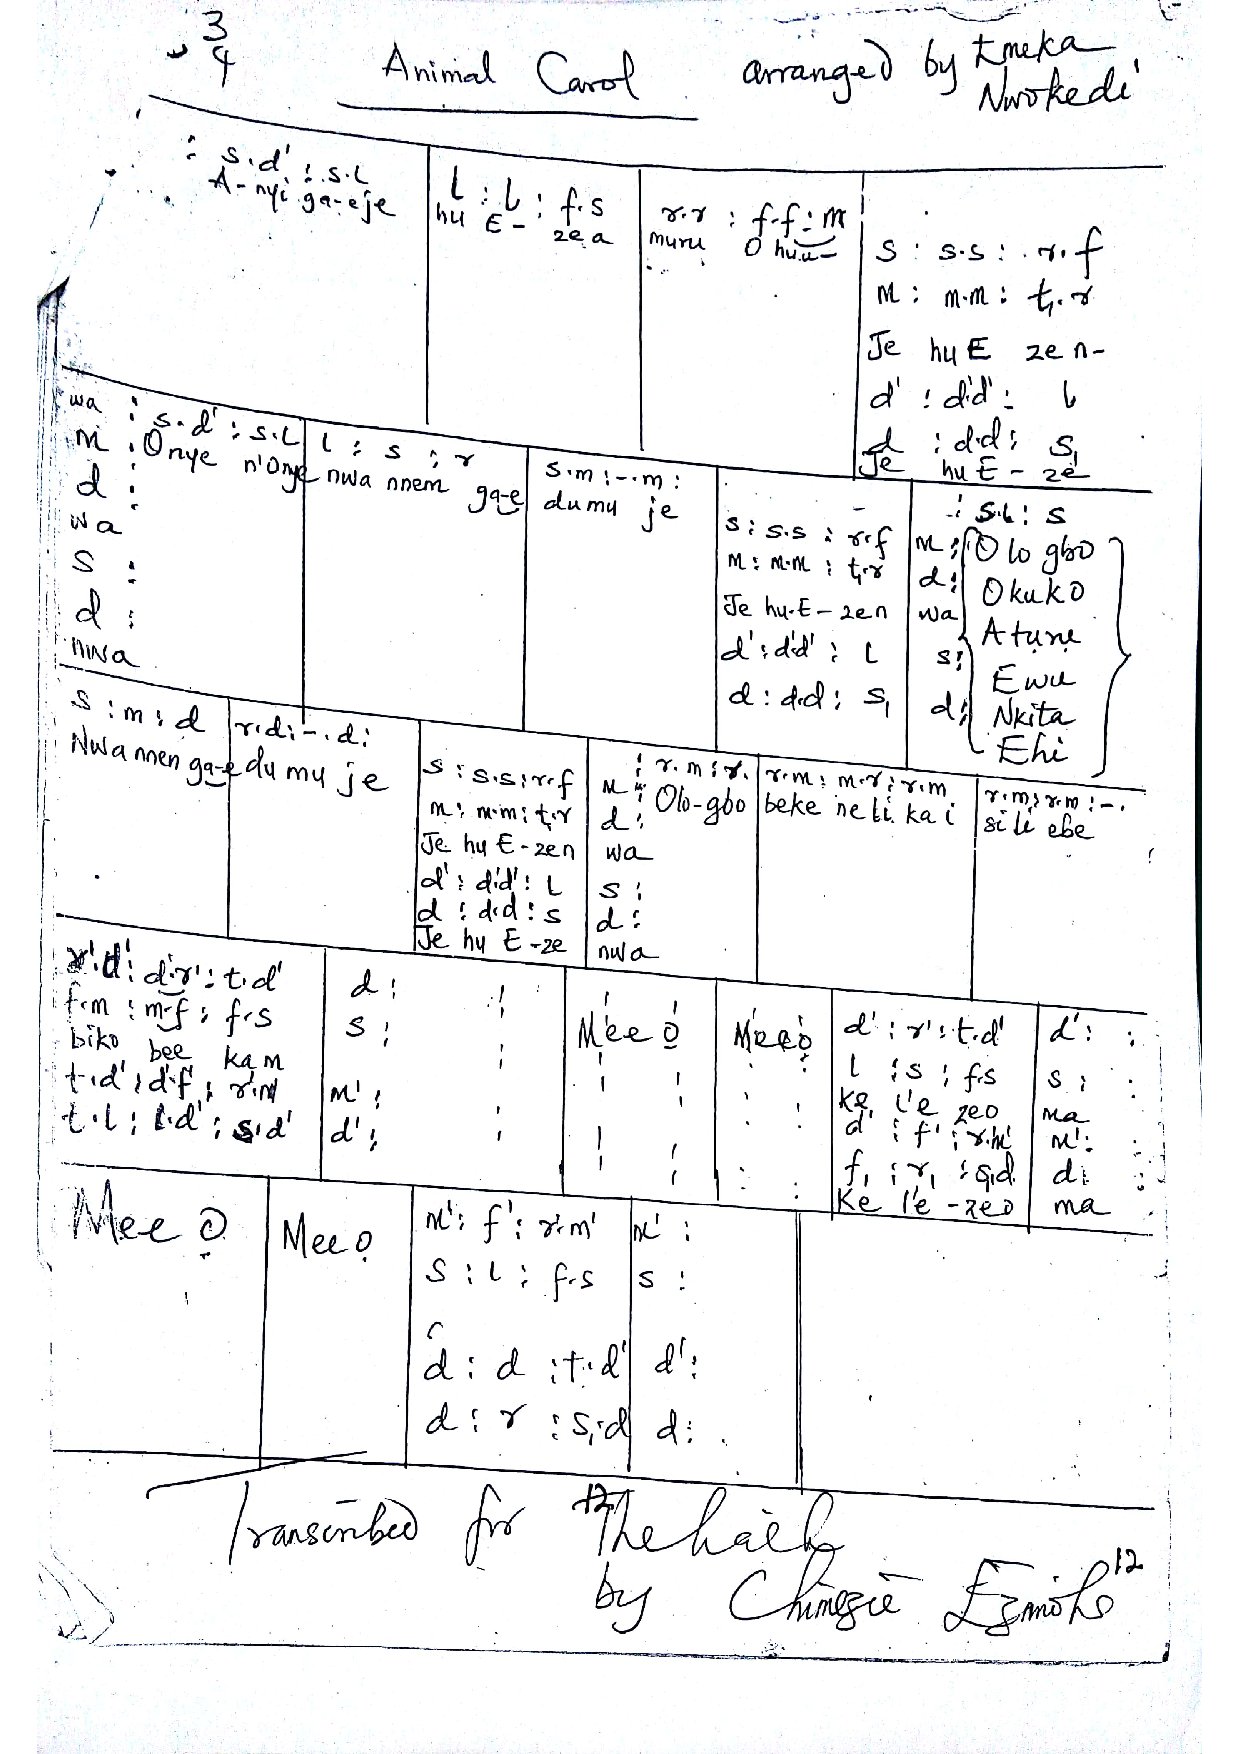 3/4
Animal Carol arranged by Emeka Nwokedi
: s.d' : s.l
A-nyi ga-eje
l : l : f.s
hu E- ze a
r.r : f.f : m
muru O huu-
s : s.s : r.f
m : m.m : t,.r
Je hu E zen-
d' : d'.d' : l
d : d.d : s,
Je hu E-ze
wa : s.d' : s.l
m : Onye n'Onye
d :
wa
s :
d :
nwa
l : s : r
nwa nnem ga-e
s.m : -.m :
du mu je
s : s.s : r.f
m : m.m : t,.r
Je hu-E-zen
d' : d'.d' : l
d : d.d : s,
: s.l : s
m : Olo gbo
d : Okuko
wa Atụrụ
s : Ewu
d : Nkita
Ehi
s : m : d
Nwa nnen ga-e
r.d : -.d :
du mu je
s : s.s : r.f
m : m.m : t,.r
Je hu E-zen
d' : d'.d' : l
d : d.d : s
Je hu E-ze
m : r.m : r.
d : Olo-gbo
wa
s :
d :
nwa
r.m : m.r : r.m
beke ne li ka i
r.m : r.m : -.
si li ebe
r'.d' : d'.r' : t.d'
f.m : m.f : f.s
biko bee kam
t.d' : d'.f' : r'.m'
t.l : l.d' : s.d'
d :
s :
m' :
d' :
Mee ọ
Mee ọ
d' : r' : t.d'
l : s : f.s
ke l'e zeo
d' : f' : r'.m'
f, : r, : s,.d
Ke l'e-zeo
d' : :
s :
ma
m' :
d :
ma
Mee ọ
Mee ọ
m' : f' : r'.m'
s : l : f.s
d : d : t.d'
d : r : s,.d
m' :
s :
d' :
d :
Transcribed for The
by Chinezie